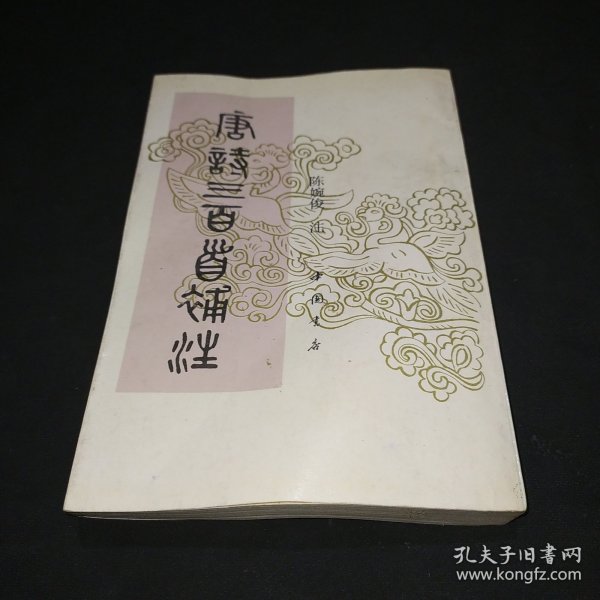 唐詩三百首補注
陈婉俊 注
中国书店
孔夫子旧书网
www.kongfz.com